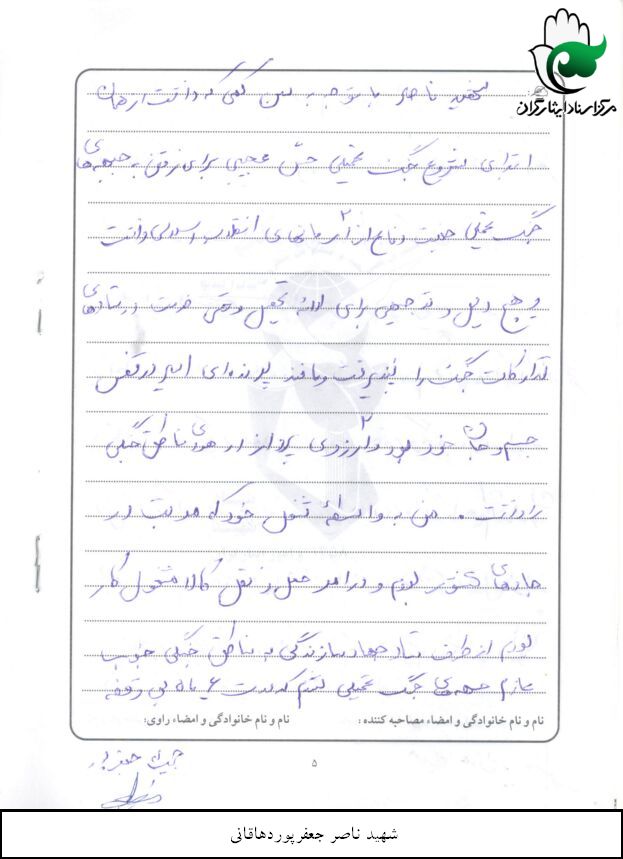 مرکز اسناد ایثارگران
شهید ناصر با توجه به سن کمی که داشت از همان
ابتدای شروع جنگ تحمیلی حس عجیبی برای رفتن به جبهه‌های
جنگ تحمیلی جهت دفاع از آرمانهای انقلاب اسلامی داشت
و هیچ دلیل و توجیهی برای ادامه تحصیل و حتی خدمت در ستادهای
تدارکات جنگ را نپذیرفت و مانند پرنده‌ای اسیر در قفس
جسم و جان خود بود و آرزوی پرواز در هوای مناطق جنگی
را داشت . من به واسطه شغل خود که مدیت در
جاده‌های کشور بودم و در امر حمل و نقل کالا مشغول کار
بودم از طرف ستاد جهاد سازندگی به مناطق جنگی جنوب
عازم جبهه‌های جنگ تحمیلی شدم که مدت ۶ ماه بی وقفه
نام و نام خانوادگی و امضاء مصاحبه کننده :
نام و نام خانوادگی و امضاء راوی:
جعفرپور
۵
شهید ناصر جعفرپوردهاقانی